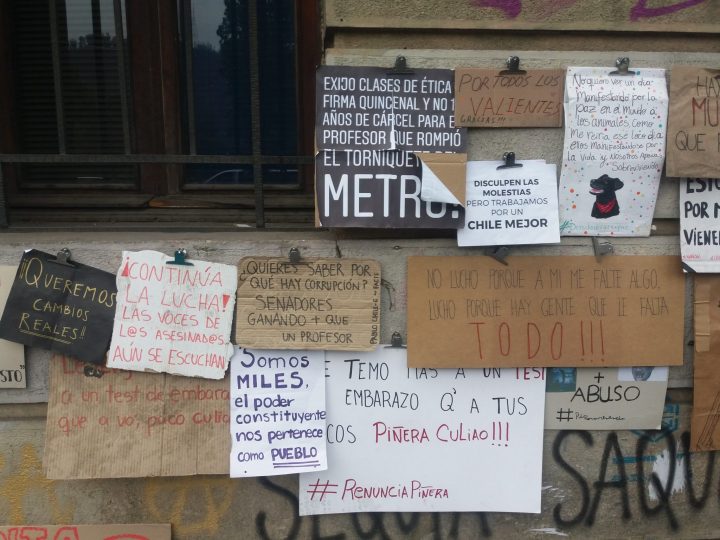 EXIJO CLASES DE ÉTICA
FIRMA QUINCENAL Y NO 1
AÑOS DE CÁRCEL PARA E
PROFESOR QUE ROMPIÓ
EL TORNIQUE
METRO.
POR TODOS LOS
VALIENTES
GRACIAS!!!
No quiero ver un día
manifestando por la
paz en el mundo a
los animales. Como
me reiría ese loco día
ellos manifestándose por
la vida y nosotros apenas
Sobreviviendo
HA
MU
QUE
DISCULPEN LAS
MOLESTIAS
PERO TRABAJAMOS
POR UN
CHILE MEJOR
ESTU
POR M
VIENE
¡¡QUEREMOS
CAMBIOS
REALES!!
¡CONTINÚA
LA LUCHA!
LAS VOCES DE
L@S ASESINAD@S
AÚN SE ESCUCHAN
¿QUIERES SABER POR
QUÉ HAY CORRUPCIÓN?
SENADORES
GANANDO + QUE
UN PROFESOR
NO LUCHO PORQUE A MI ME FALTE ALGO,
LUCHO PORQUE HAY GENTE QUE LE FALTA
TODO!!!
USTO
a un test de embara
que a vo, paco culia
Somos
MILES,
el poder
constituyente
nos pertenece
como PUEBLO
E TEMO MÁS A UN TEST
EMBARAZO Q' A TUS
COS PIÑERA CULIAO!!!
#RENUNCIAPIÑERA
+
ABUSO
SAQU